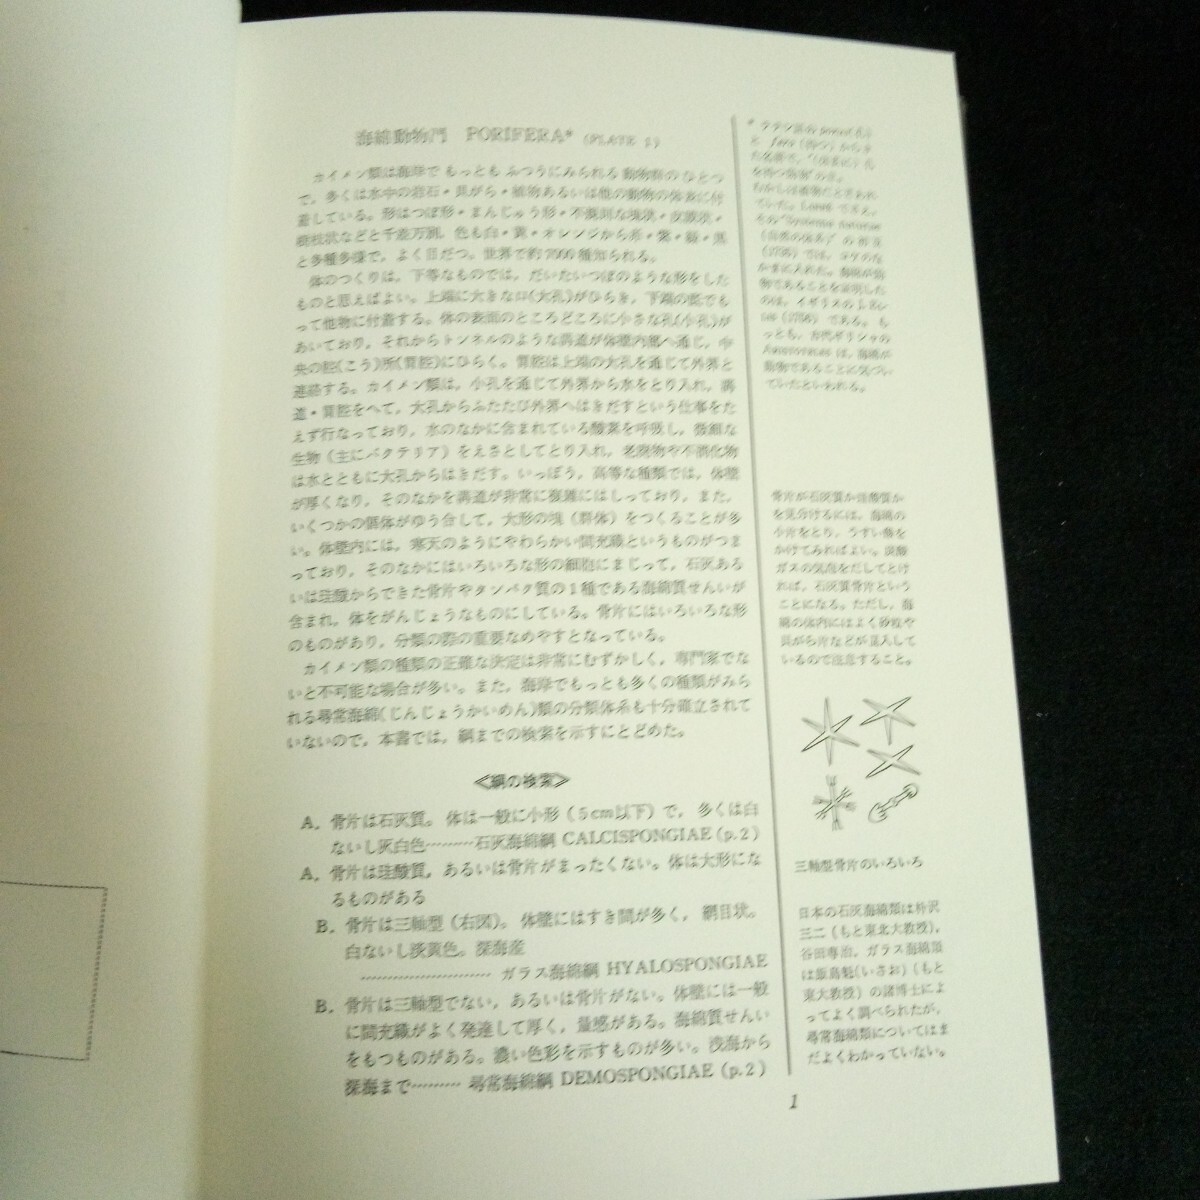 海綿動物門 PORIFERA* (PLATE 1)
カイメン類は海洋でもっともふつうにみられる動物類のひとつ
で，多くは水中の岩石・貝がら・植物あるいは他の動物の体表に付
着している。形はつぼ形・まんじゅう形・不規則な塊状・皮膜状・
樹枝状などと千差万別，色も白・黄・オレンジから赤・紫・緑・黒
と多種多様で，よく目だつ。世界で約7000種知られる。
体のつくりは，下等なものでは，だいたいつぼのような形をした
ものと思えばよい。上端に大きな口(大孔)がひらき，下端の底でも
って他物に付着する。体の表面のところどころに小さな孔(小孔)が
あいており，それからトンネルのような溝道が体壁内部へ通じ，中
央の腔(こう)所(胃腔)にひらく。胃腔は上端の大孔を通じて外界と
連絡する。カイメン類は，小孔を通じて外界から水をとり入れ，溝
道・胃腔をへて，大孔からふたたび外界へはきだすという仕事をた
えず行なっており，水のなかに含まれている酸素を呼吸し，微細な
生物（主にバクテリア）をえさとしてとり入れ，老廃物や不消化物
は水とともに大孔からはきだす。いっぽう，高等な種類では，体壁
が厚くなり，そのなかを溝道が非常に複雑にはしっており，また，
いくつかの個体がゆう合して，大形の塊（群体）をつくることが多
い。体壁内には，寒天のようにやわらかい間充織というものがつま
っており，そのなかにはいろいろな形の細胞にまじって，石灰ある
いは珪酸からできた骨片やタンパク質の1種である海綿質せんいが
含まれ，体をがんじょうなものにしている。骨片にはいろいろな形
のものがあり，分類の際の重要なめやすとなっている。
カイメン類の種類の正確な決定は非常にむずかしく，専門家でな
いと不可能な場合が多い。また，海岸でもっとも多くの種類がみら
れる尋常海綿(じんじょうかいめん)類の分類体系も十分確立されて
いないので，本書では，綱までの検索を示すにとどめた。
≪綱の検索≫
A．骨片は石灰質。体は一般に小形（5cm以下）で，多くは白
ないし灰白色………石灰海綿綱 CALCISPONGIAE (p.2)
A．骨片は珪酸質，あるいは骨片がまったくない。体は大形にな
るものがある
B．骨片は三軸型（右図）。体壁にはすき間が多く，網目状。
白ないし淡黄色。深海産
……………………… ガラス海綿綱 HYALOSPONGIAE
B．骨片は三軸型でない，あるいは骨片がない。体壁には一般
に間充織がよく発達して厚く，量感がある。海綿質せんい
をもつものがある。濃い色彩を示すものが多い。浅海から
深海まで……… 尋常海綿綱 DEMOSPONGIAE (p.2)
* ラテン語の
と fero (持つ) からき
た名前で，
を持つ動物 の意。
むかしは植物だと思われ
ていた。
その "Systema naturae
(自然の体系)" の
では，コケのな
かまに入れた。海綿が動
物であることを証明した
のは，イギリスの
である。も
っとも，古代ギリシャの
は，海綿が
動物であることに気づい
ていたといわれる。
骨片が石灰質か珪酸質か
を見分けるには，海綿の
小片をとり，うすい酸を
かけてみればよい。炭酸
ガスの気泡をだしてとけ
れば，石灰質骨片という
ことになる。ただし，海
綿の体内にはよく砂粒や
貝がら片などが混入して
いるので注意すること。
三軸型骨片のいろいろ
日本の石灰海綿類は朴沢
三二（もと東北大教授），
谷田専治，ガラス海綿類
は飯島魁(いさお)（もと
東大教授）の諸博士によ
ってよく調べられたが，
尋常海綿類についてはま
だよくわかっていない。
1